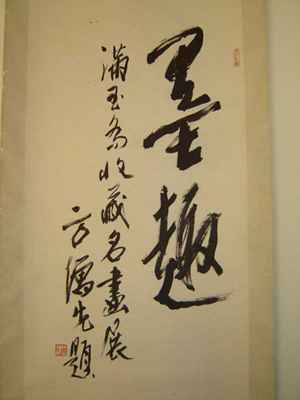 墨趣
滿玉斋收藏名畫展
方先題